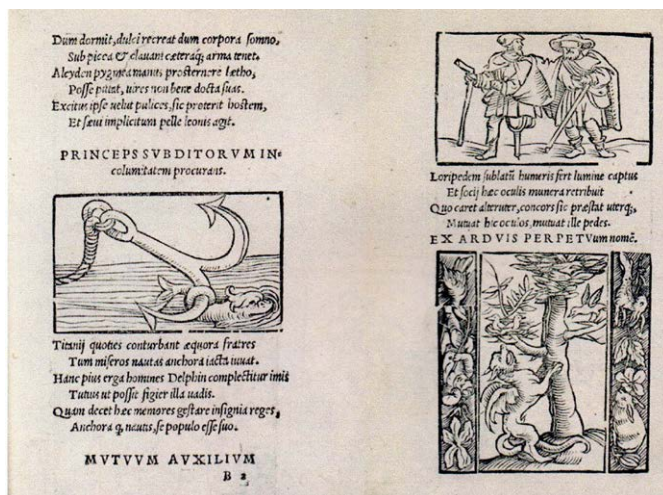 Dum dormit, dulci recreat dum corpora somno,
Sub picea & clauam cæteraq; arma tenet.
Alcyden pygmea manus prosternere lætho,
Posse putat, uires non bene docta suas.
Excitus ipse uelut pulices, sic proterit hostem,
Et sæui implicitum pelle leonis agit.
PRINCEPS SVBDITORVM IN-
columitatem procurans.
Titanij quoties conturbant æquora fratres
Tum miseros nautas anchora iacta iuuat.
Hanc pius erga homines Delphin complectitur imis
Tutius ut possit figier illa uadis.
Quam decet hæc memores gestare insignia reges,
Anchora q, nautis, se populo esse suo.
MVTVVM AVXILIVM
B 2
Loripedem sublatũ humeris fert lumine captus
Et socij hæc oculis munera retribuit
Quo caret alteruter, concors sic præstat uterq;,
Mutuat hic oculos, mutuat ille pedes.
EX ARDVIS PERPETVum nomẽ.